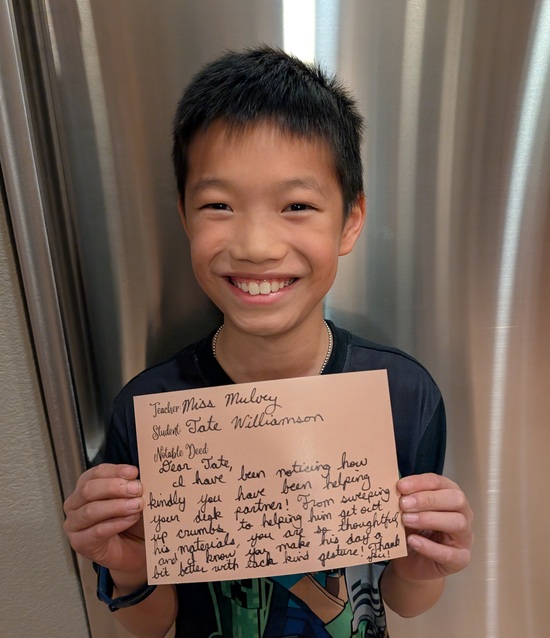 Teacher Miss Mulvey
Student Tate Williamson
Notable Deed
Dear Tate,
I have been noticing how
kindly you have been helping
your desk partner! From sweeping
up crumbs, to helping him get out
his materials, you are so thoughtful,
and I know you make his day a
bit better with each kind gesture! Thank
you!